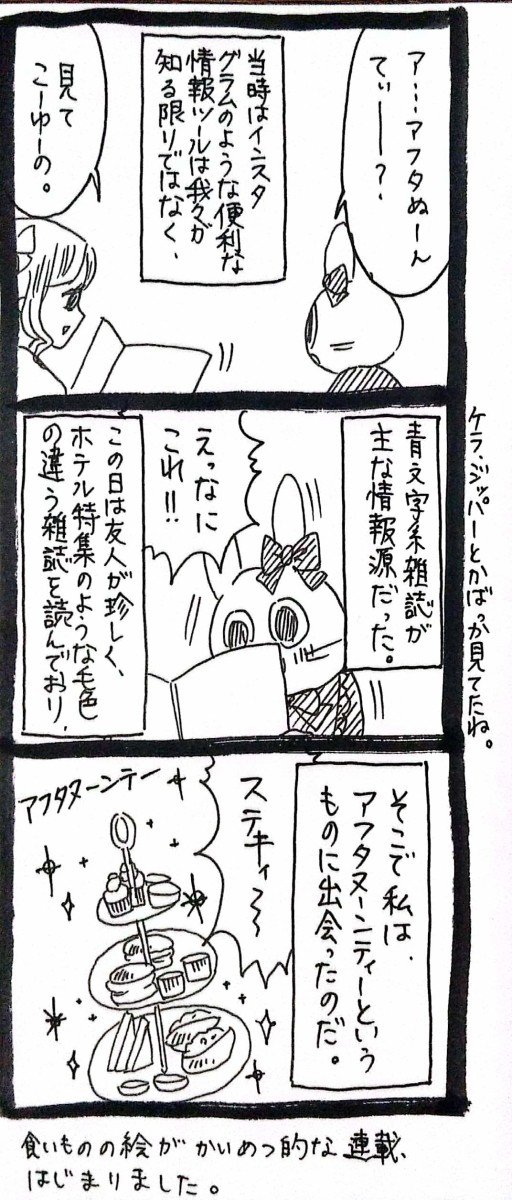 ア…アフタぬーん
てぃーー？
当時はインスタ
グラムのような便利な
情報ツールは我々が
知る限りではなく、
見て
こーゆーの。
青文字系雑誌が
主な情報源だった。
えっなに
これ!!
この日は友人が珍しく、
ホテル特集のような毛色
の違う雑誌を読んでおり、
ケラ、ジッパーとかばっか見てたね。
そこで私は、
アフタヌーンティーという
ものに出会ったのだ。
ステキィ〜〜
アフタヌーンテー
食いものの絵が かいめつ的な 連載、
はじまりました。